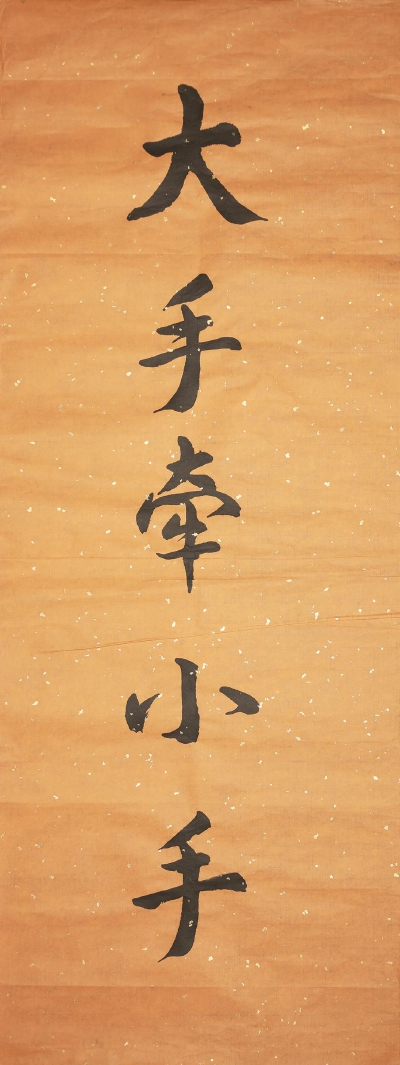 大手牵小手